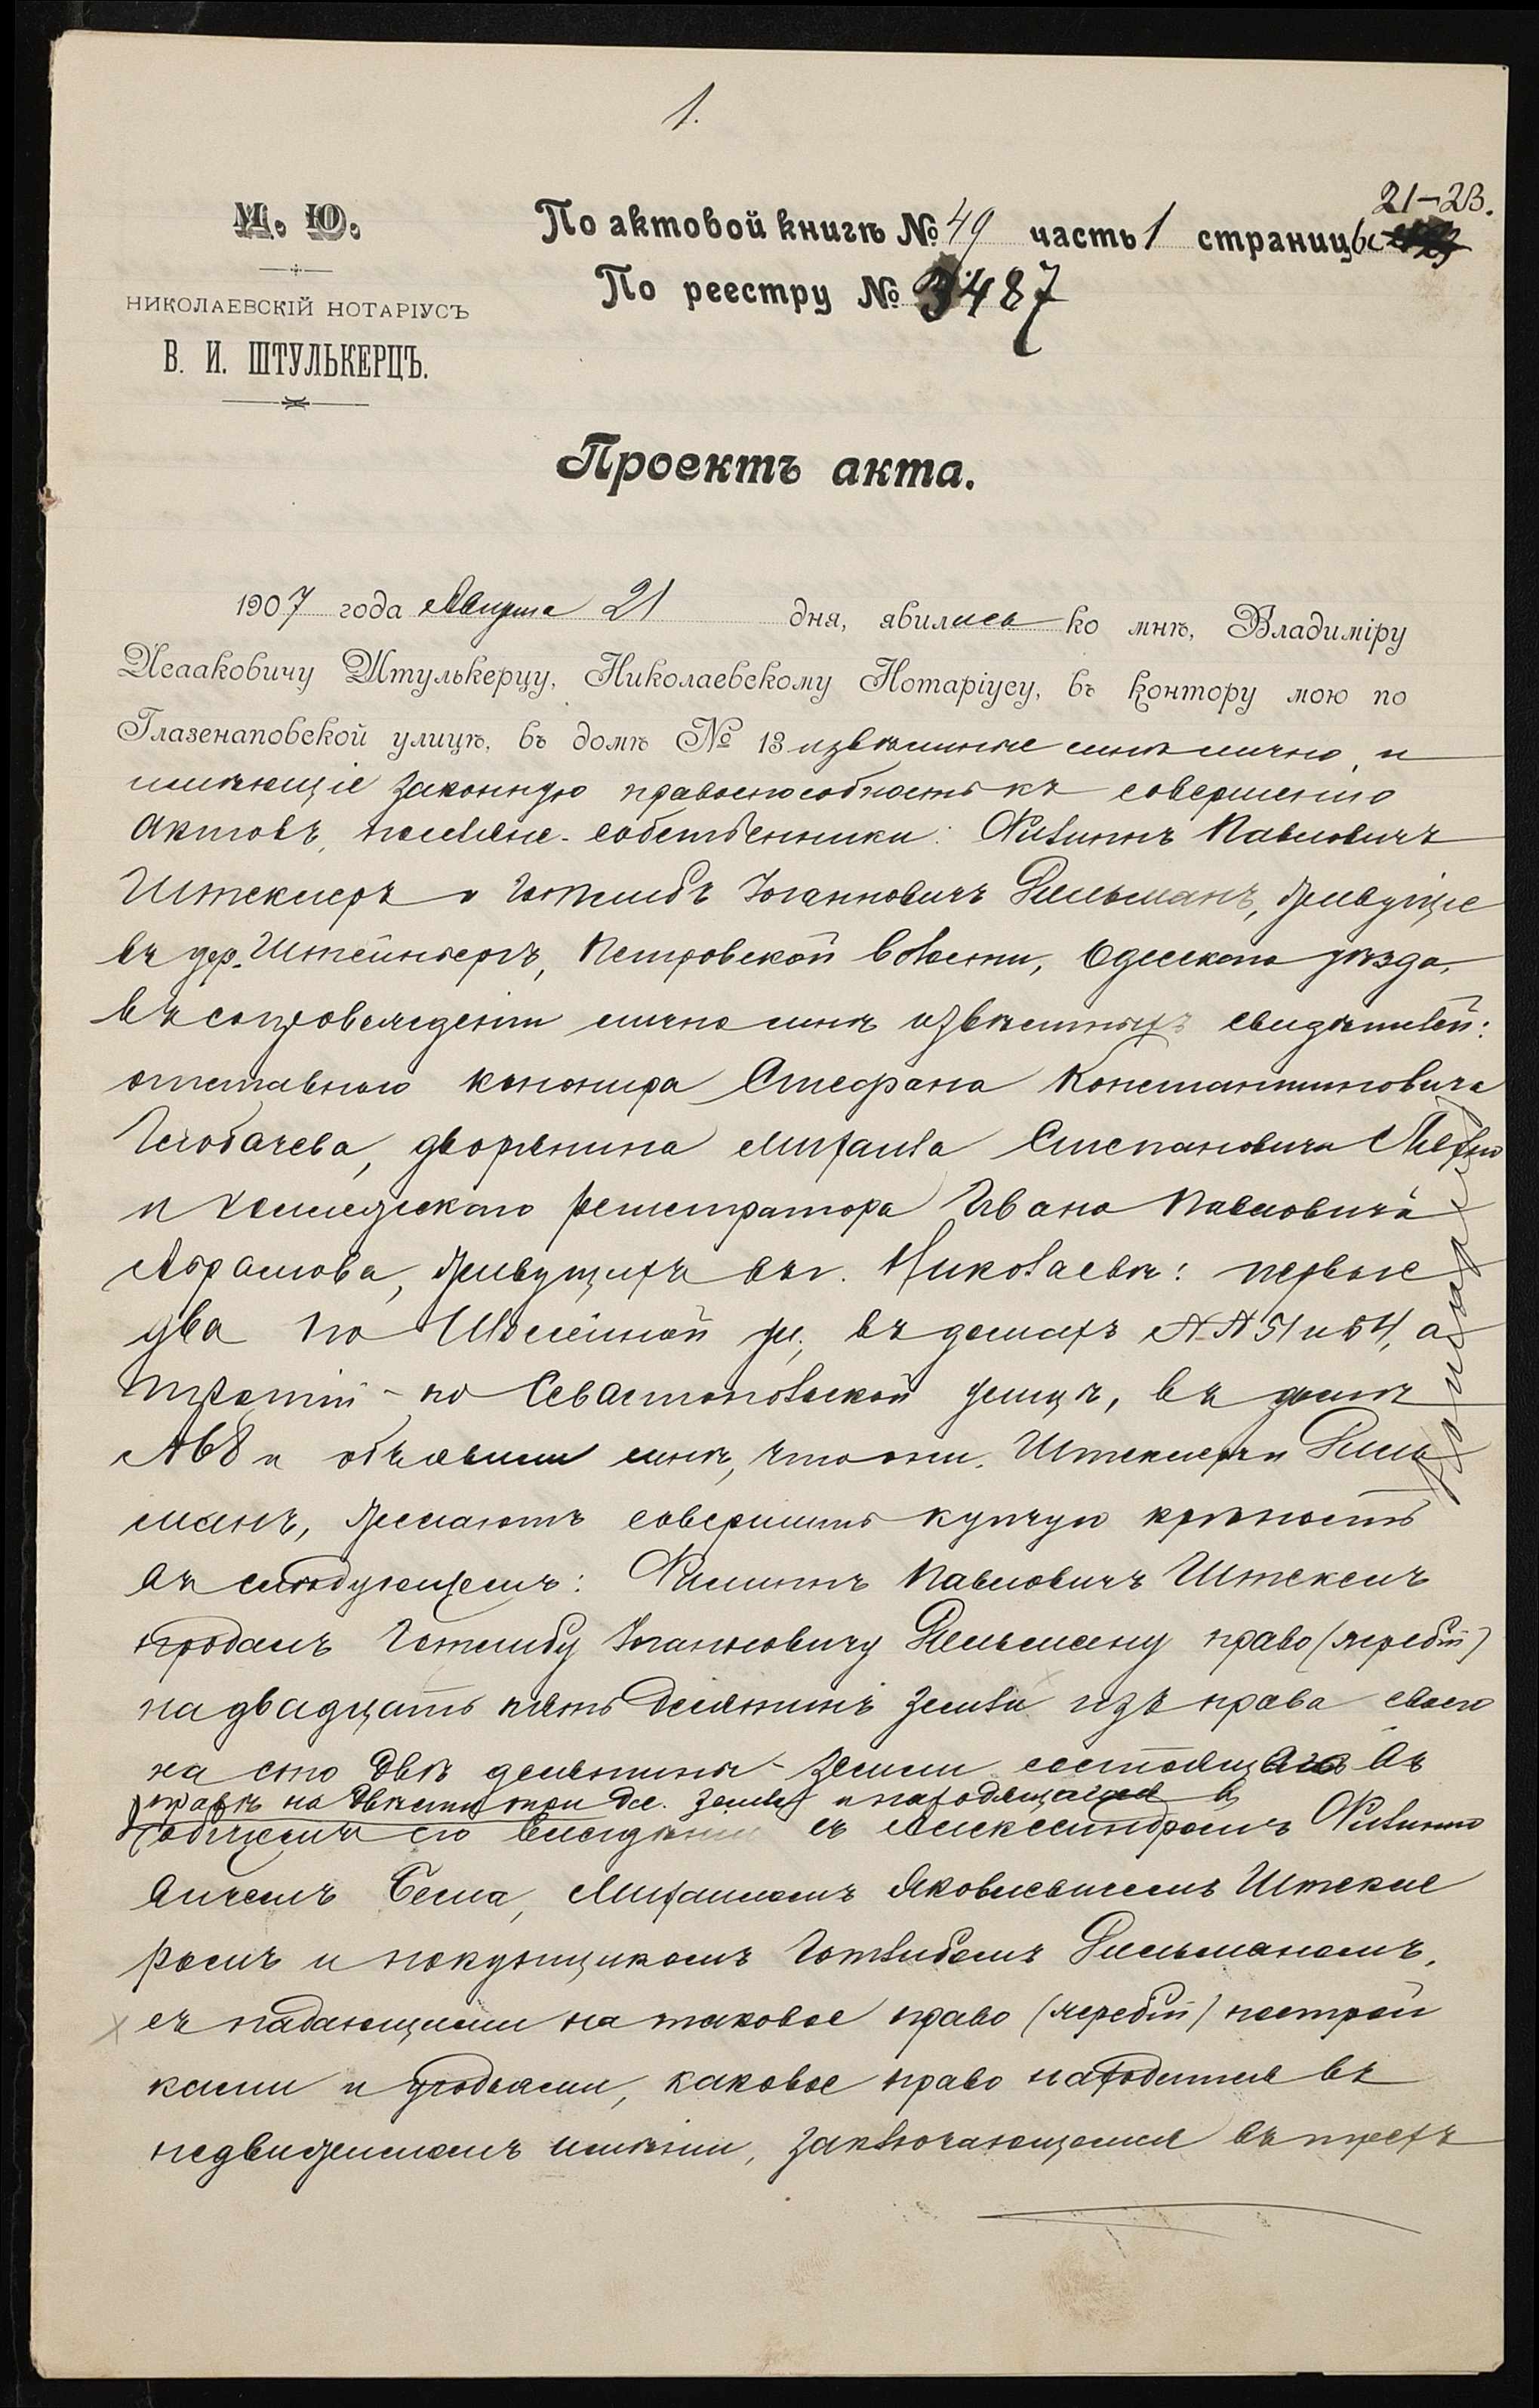 1.
21-23.
М. Ю.
НИКОЛАЕВСКІЙ НОТАРІУСЪ
В. И. ШТУЛЬКЕРЦЪ.
По актовой книгѣ № 49 часть 1 страницы
По реестру № 3487
Проектъ акта.
1907 года Августа 21 дня, явились ко мнѣ, Владиміру
Исааковичу Штулькерцу, Николаевскому Нотаріусу, въ контору мою по
Глазенаповской улицѣ, въ домѣ № 13 извѣстные мнѣ лично и
имѣющіе законную правоспособность къ совершенію
актовъ, поселяне-собственники: Филиппъ Павловичъ
Штеклеръ и Готлибъ Іоганновичъ Рильманъ, живущіе
въ дер. Штейнбергъ, Петровской волости, Одесскаго уѣзда,
въ сопровожденіи лично мнѣ извѣстныхъ свидѣтелей:
отставного канонира Стефана Константиновича
дворянина Михаила Степановича
и Коллежскаго регистратора Ивана Павловича
Абрамова, живущихъ въ г. Николаевѣ: первые
два по ул., въ домахъ №№ 51 и 54, а
третій - по Севастопольской улицѣ, въ домѣ
№ 68 и объявили мнѣ, что они, Штеклеръ и Риль
манъ, желаютъ совершить купчую крѣпость
въ слѣдующемъ: Филиппъ Павловичъ Штеклеръ
продалъ Готлибу Іоганновичу Рильману право (жребій)
на двадцать пять десятинъ земли изъ права своего
на сто двѣ десятины земли состоящаго въ
правѣ на двѣсти три дес. земли и находящагося въ
общемъ его владѣніи съ Александромъ Филиппо
вичемъ Бема, Михаиломъ Яковлевичемъ Штекле
ромъ и покупщикомъ Готлибомъ Рильманомъ,
съ падающими на таковое право (жребій) построй
ками и угодьями, каковое право находится въ
недвижимомъ имѣніи, заключающемся въ трехъ